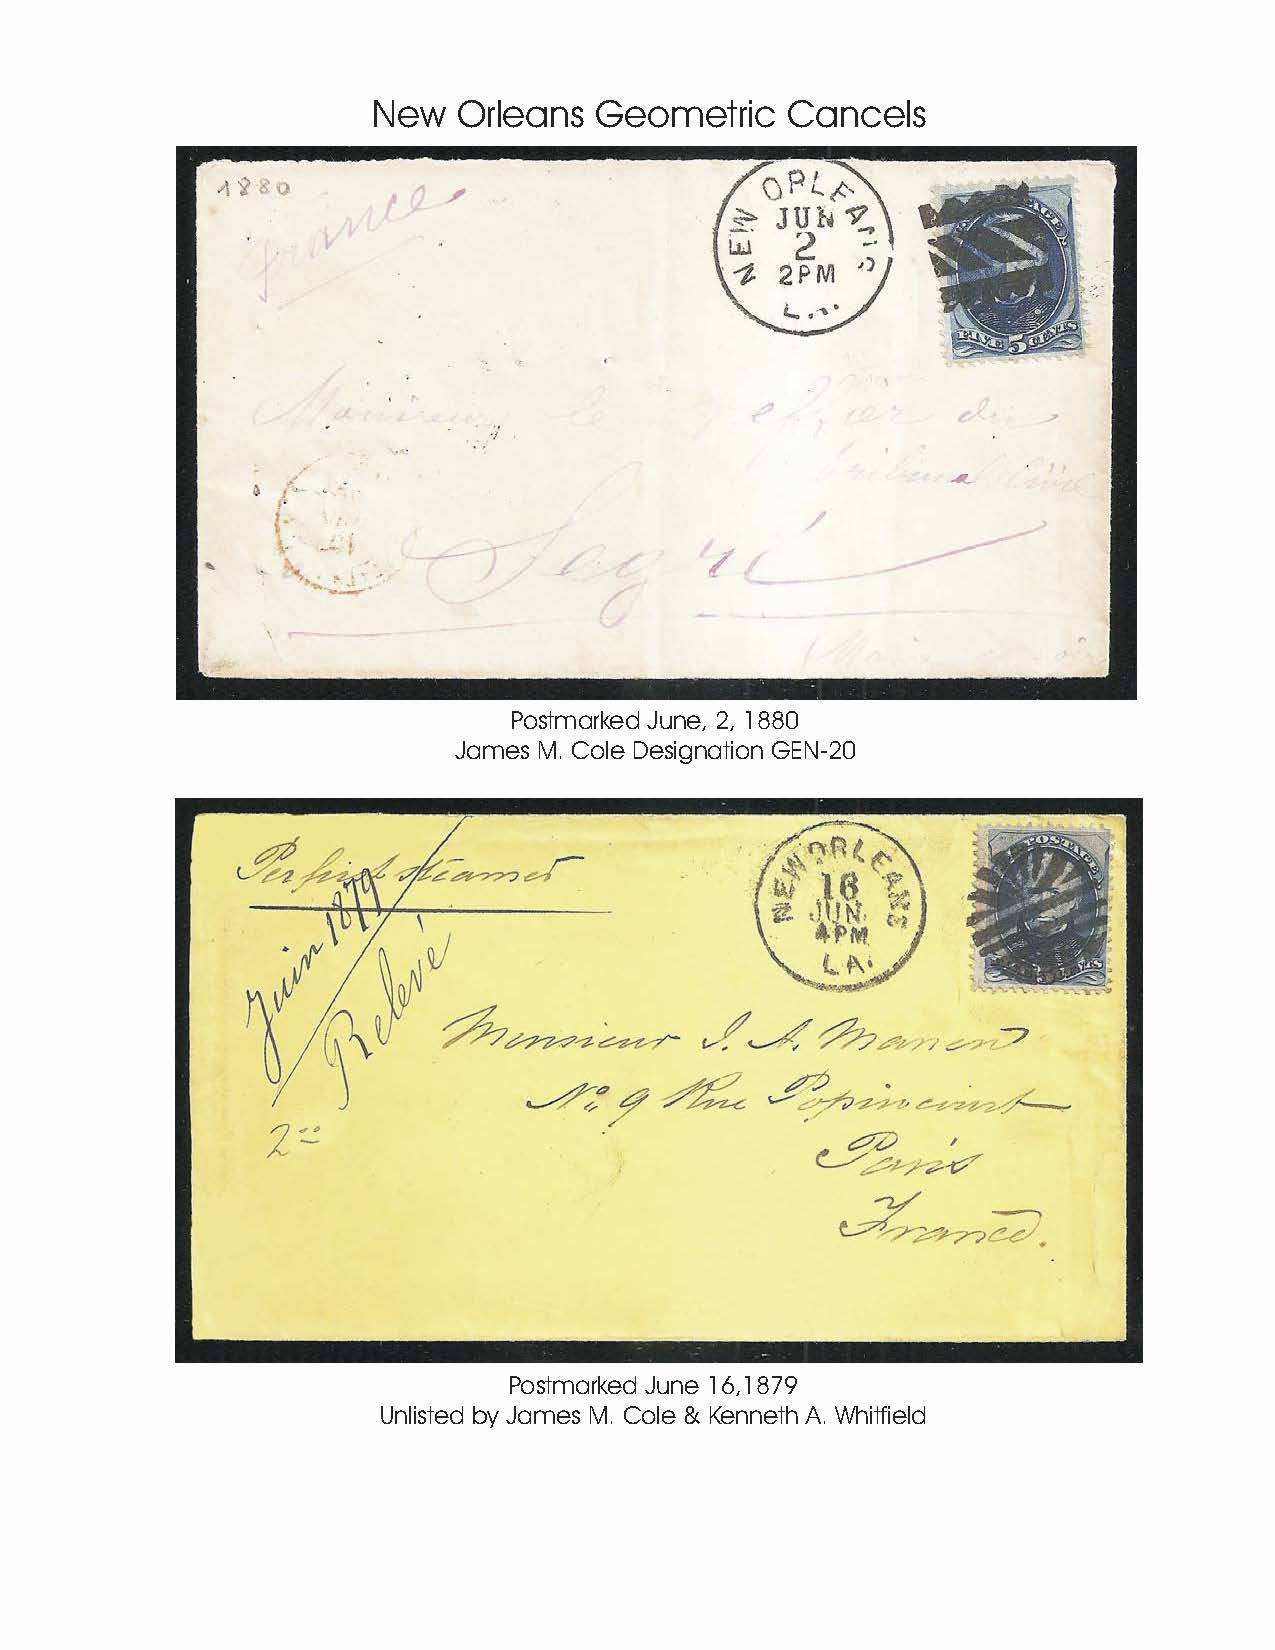 New Orleans Geometric Cancels
1880
france
NEW ORLEANS
JUN
2
2PM
L.A.
POSTAGE
FIVE 5 CENTS
Monsieur le greffier du
tribunal civil
Segré
Postmarked June, 2, 1880
James M. Cole Designation GEN-20
Per first steamer
Juin 1879
Relevé
2 00
NEW ORLEANS
16
JUN.
4PM
LA.
POSTAGE
Monsieur J. A. Manen
No. 9 Rue Popincourt
Paris
France.
Postmarked June 16,1879
Unlisted by James M. Cole & Kenneth A. Whitfield